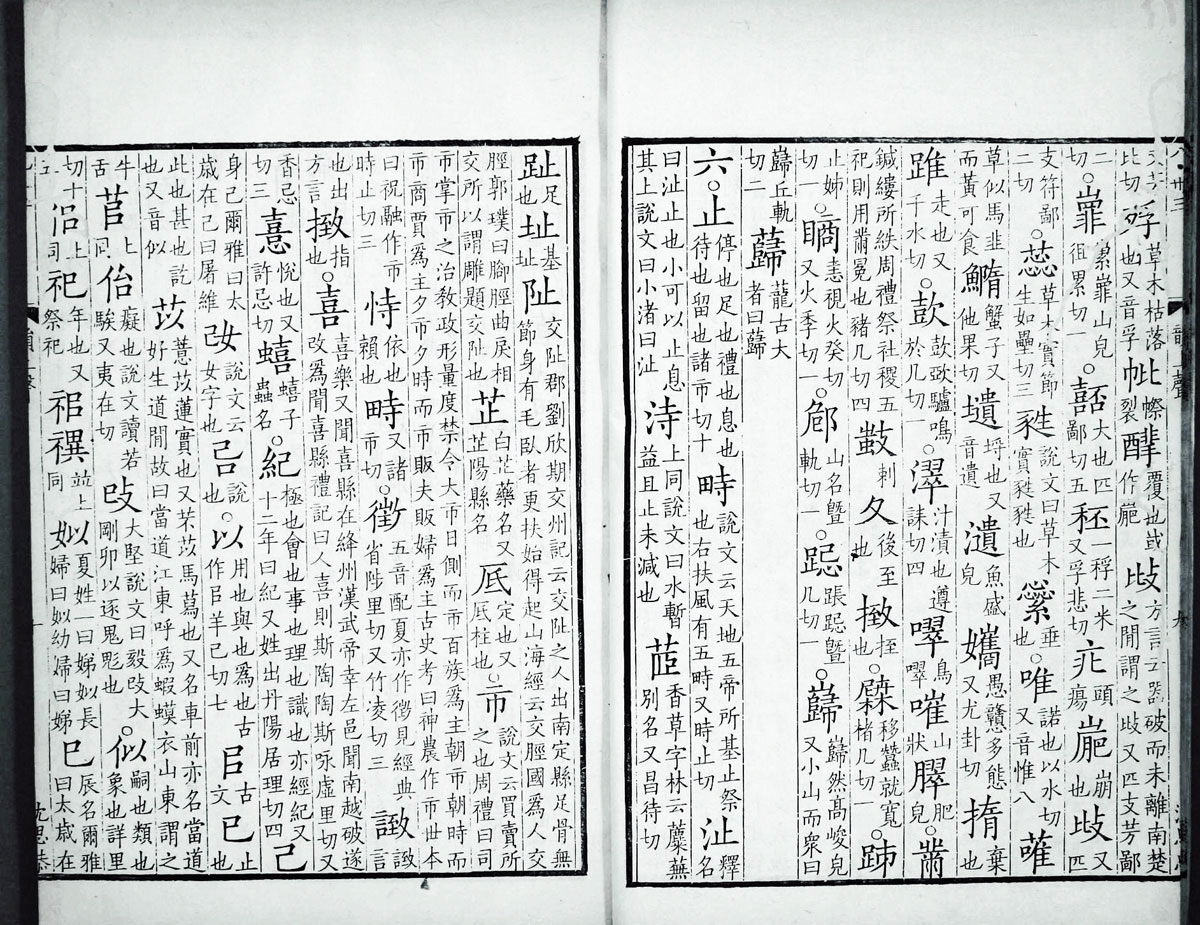 比切殍草木枯落也又音孚𢁪幤裂䤏覆也或作嶏歧方言云器破而未離南楚之閒謂之歧又匹支芳鄙
二切。嶵累嶵山皃徂累切一。嚭大也匹鄙切五秠一稃二米又孚悲切疕頭瘍嶏崩也歧又匹
支符鄙二切。蕊草木實節生如壘切三甤說文曰草木實甤甤也縈垂也。唯諾也以水切又音惟八蓶
草似馬韭而黃可食䲊蟹子又他果切壝埒也又音遺瀢魚盛皃孈愚戇多態又尤卦切㨊棄也
踓走也又千水切。欳欳㰦驢鳴於几切一。澤汁漬也遵誄切四噿鳥噿嗺山狀臎肥皃。黹
鍼縷所紩周禮祭社稷五祀則用黹冕也豬几切四㪏刺夂後至也㨖挃也。㯌移蠶就寬楮几切一。䟡
止姊切一。瞲恚視火癸切又火季切一。郈山名曁軌切一。跽䟰跽曁几切一。巋巋然高峻皃又小山而衆曰
巋丘軌切二蘬蘢古大者曰蘬
六。止停也足也禮也息也待也留也諸市切十畤說文云天地五帝所基止祭也右扶風有五畤又時止切沚釋名
曰沚止也小可以止息其上說文曰小渚曰沚洔上同說文曰水暫益且止未減也茝香草字林云蘪蕪別名又昌待切
趾足也址基址阯交阯郡劉欣期交州記云交阯之人出南定縣足骨無節身有毛臥者更扶始得起山海經云交脛國爲人交
脛郭璞曰腳脛曲戾相交所以謂雕題交阯也芷白芷藥名又芷陽縣名厎定也又厎柱也。市說文云買賣所之也周禮曰司
市掌市之治教政形量度禁令大市日側而市百族爲主朝市朝時而市商賈爲主夕市夕時而市販夫販婦爲主古史考曰神農作市世本
曰祝融作市時止切三恃依也賴也畤又諸市切。徵五音配夏亦作徵見經典省陟里切又竹凌切三誺誺言
也出方言㨖指也。喜喜樂又聞喜縣在絳州漢武帝幸左邑聞南越破遂改爲聞喜縣禮記曰人喜則斯陶陶斯咏虛里切又
香忌切三憙悅也又許忌切蟢蟢子蟲名。紀極也會也事也理也識也亦經紀又十二年曰紀又姓出丹陽居理切四己
身己爾雅曰太歲在己曰屠維改說文云女字也㠱說也。以用也與也爲也古作㠯羊己切七㠯古文已止也
此也甚也訖也又音似苡薏苡蓮實也又芣苡馬蕮也又名車前亦名當道好生道閒故曰當道江東呼爲蝦蟆衣山東謂之
牛舌苢上同佁癡也說文讀若騃又夷在切攺大堅說文曰毅攺大剛卯以逐鬼鬽也。似嗣也類也象也詳里
切十㑥上司祀年也又祭祀禩竝上同姒夏姓一曰娣姒長婦曰姒幼婦曰娣巳辰名爾雅曰太歲在